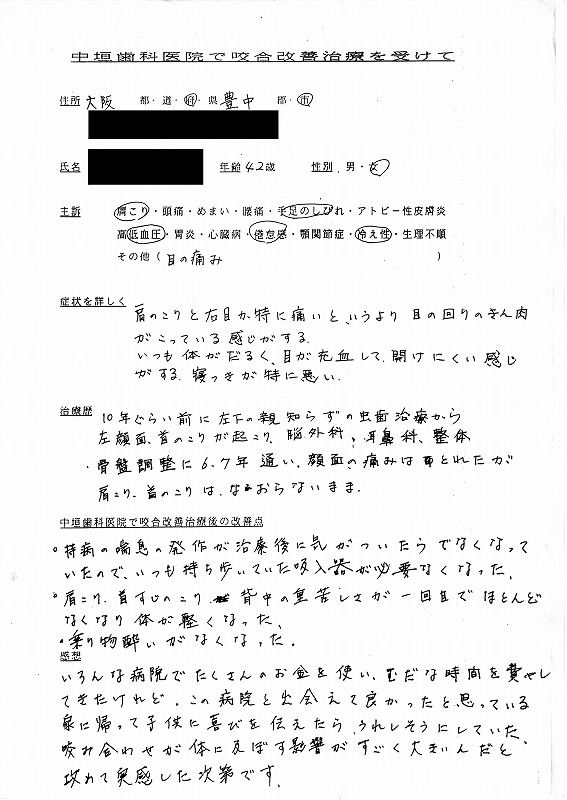 中垣歯科医院で咬合改善治療を受けて
住所 大阪 都・道・府・県 豊中 郡・市
氏名 年齢 42歳 性別 男・女
主訴 肩こり・頭痛・めまい・腰痛・手足のしびれ・アトピー性皮膚炎
高低血圧・胃炎・心臓病・倦怠感・顎関節症・冷え性・生理不順
その他（目の痛み）
症状を詳しく
肩のこりと右目が特に痛いと、いうより目の回りのきん肉
がこっている感じがする。
いつも体がだるく、目が充血して、開けにくい感じ
がする。寝つきが特に悪い。
治療歴 10年ぐらい前に左下の親知らずの虫歯治療から
左顔面、首のこりが起こり、脳外科、耳鼻科、整体
・骨盤調整に6、7年通い、顔面の痛みはとれたが
肩こり、首のこりは、なおらないまま。
中垣歯科医院で咬合改善治療後の改善点
○持病の喘息の発作が治療後に気がついたらでなくなって
いたので、いつも持ち歩いていた吸入器が必要なくなった。
○肩こり、首すじのこり 背中の重苦しさが一回目でほとんど
なくなり体が軽くなった。
・乗り物酔いがなくなった。
感想
いろんな病院でたくさんのお金を使い、むだな時間を費やし
てきたけれど、この病院と出会えて良かったと思っている
家に帰って子供に喜びを伝えたら、うれしそうにしていた。
咬み合わせが体に及ぼす影響がすごく大きいんだと、
改めて実感した次第です。